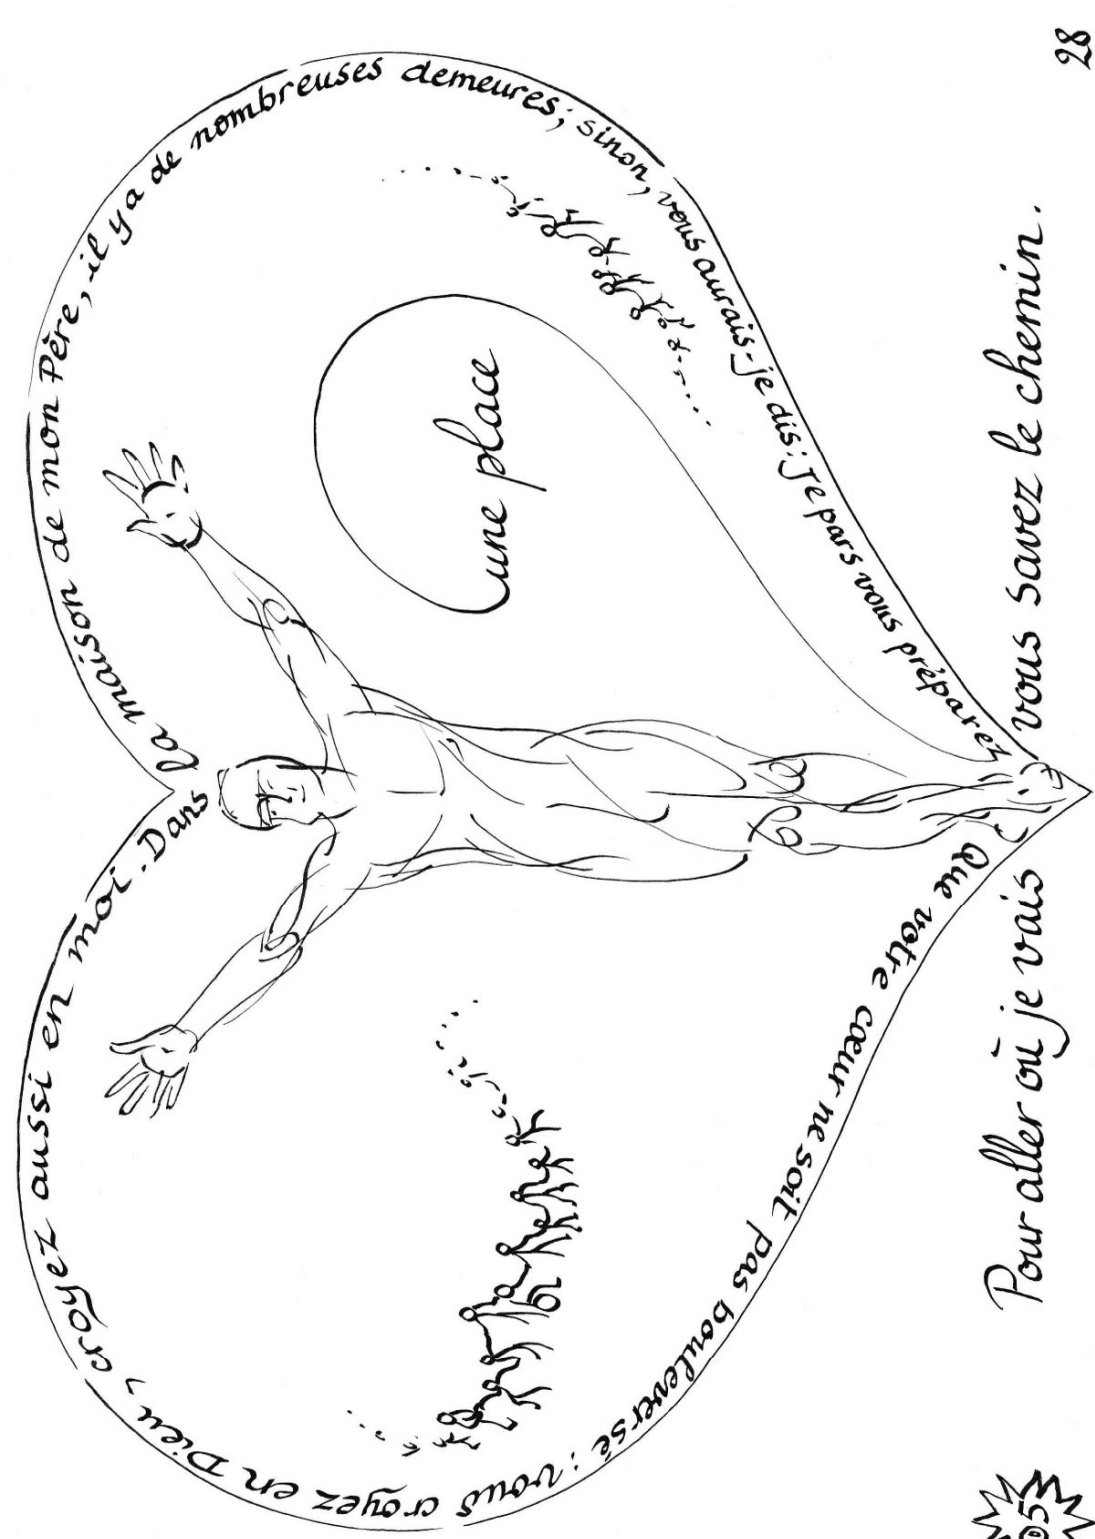 Que votre cœur ne soit pas bouleversé : vous croyez en Dieu, croyez aussi en moi. Dans
la maison de mon Père, il y a de nombreuses demeures; sinon, vous aurais-je dis: Je pars vous préparez
une place
Pour aller où je vais vous savez le chemin.
28